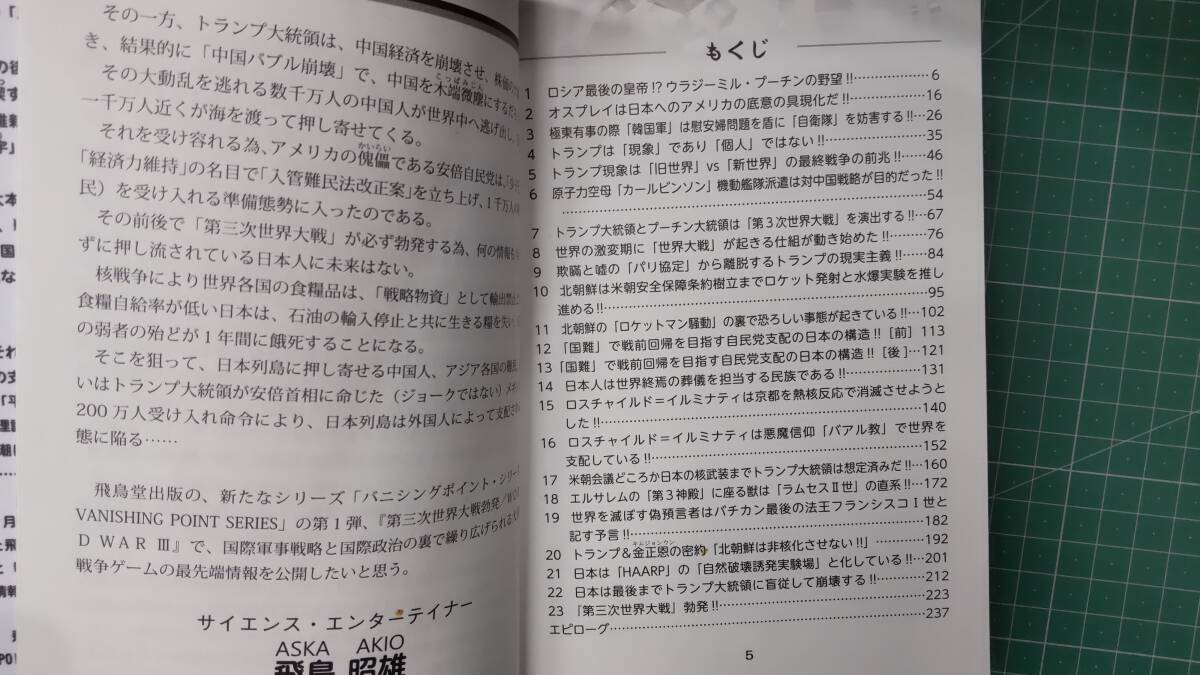 その一方、トランプ大統領は、中国経済を崩壊させ、株価の
き、結果的に「中国バブル崩壊」で、中国を木端微塵にするだ
こっぱみじん
その大動乱を逃れる数千万人の中国人が世界中へ逃げ出し、
一千万人近くが海を渡って押し寄せてくる。
それを受け容れる為、アメリカの傀儡である安倍自民党は、
かいらい
「経済力維持」の名目で「入管難民法改正案」を立ち上げ、1千万人の
民）を受け入れる準備態勢に入ったのである。
その前後で「第三次世界大戦」が必ず勃発する為、何の情報も
ずに押し流されている日本人に未来はない。
核戦争により世界各国の食糧品は、「戦略物資」として輸出禁止
食糧自給率が低い日本は、石油の輸入停止と共に生きる糧を失い、
の弱者の殆どが1年間に餓死することになる。
そこを狙って、日本列島に押し寄せる中国人、アジア各国の難民、
いはトランプ大統領が安倍首相に命じた（ジョークではない）メキ
200万人受け入れ命令により、日本列島は外国人によって支配され
態に陥る……
飛鳥堂出版の、新たなシリーズ「バニシングポイント・シリー
VANISHING POINT SERIES」の第1弾、『第三次世界大戦勃発／WO
D WAR Ⅲ』で、国際軍事戦略と国際政治の裏で繰り広げられる
戦争ゲームの最先端情報を公開したいと思う。
サイエンス・エンターテイナー
ASKA AKIO
飛鳥 昭雄
もくじ
1 ロシア最後の皇帝!?ウラジーミル・プーチンの野望!!………………6
2 オスプレイは日本へのアメリカの底意の具現化だ!!………………16
3 極東有事の際「韓国軍」は慰安婦問題を盾に「自衛隊」を妨害する!!…26
4 トランプは「現象」であり「個人」ではない!!………………35
5 トランプ現象は「旧世界」vs「新世界」の最終戦争の前兆!!……46
6 原子力空母「カールビンソン」機動艦隊派遣は対中国戦略が目的だった!!
………………54
7 トランプ大統領とプーチン大統領は「第3次世界大戦」を演出する!!…67
8 世界の激変期に「世界大戦」が起きる仕組が動き始めた!!………76
9 欺瞞と嘘の「パリ協定」から離脱するトランプの現実主義!!……84
10 北朝鮮は米朝安全保障条約樹立までロケット発射と水爆実験を推し
進める!!………………95
11 北朝鮮の「ロケットマン騒動」の裏で恐ろしい事態が起きている!!…102
12 「国難」で戦前回帰を目指す自民党支配の日本の構造!!［前］113
13 「国難」で戦前回帰を目指す自民党支配の日本の構造!!［後］…121
14 日本人は世界終焉の葬儀を担当する民族である!!………………131
15 ロスチャイルド＝イルミナティは京都を熱核反応で消滅させようと
した!!………………140
16 ロスチャイルド＝イルミナティは悪魔信仰「バアル教」で世界を
支配している!!………………152
17 米朝会議どころか日本の核武装までトランプ大統領は想定済みだ!!…160
18 エルサレムの「第3神殿」に座る獣は「ラムセスⅡ世」の直系!!…172
19 世界を滅ぼす偽預言者はバチカン最後の法王フランシスコⅠ世と
記す予言!!………………182
20 トランプ&金正恩の密約「北朝鮮は非核化させない!!」…………192
キムジョンウン
21 日本は「HAARP」の「自然破壊誘発実験場」と化している!!…201
22 日本は最後までトランプ大統領に盲従して崩壊する!!…………212
23 「第三次世界大戦」勃発!!………………223
エピローグ………………237
5